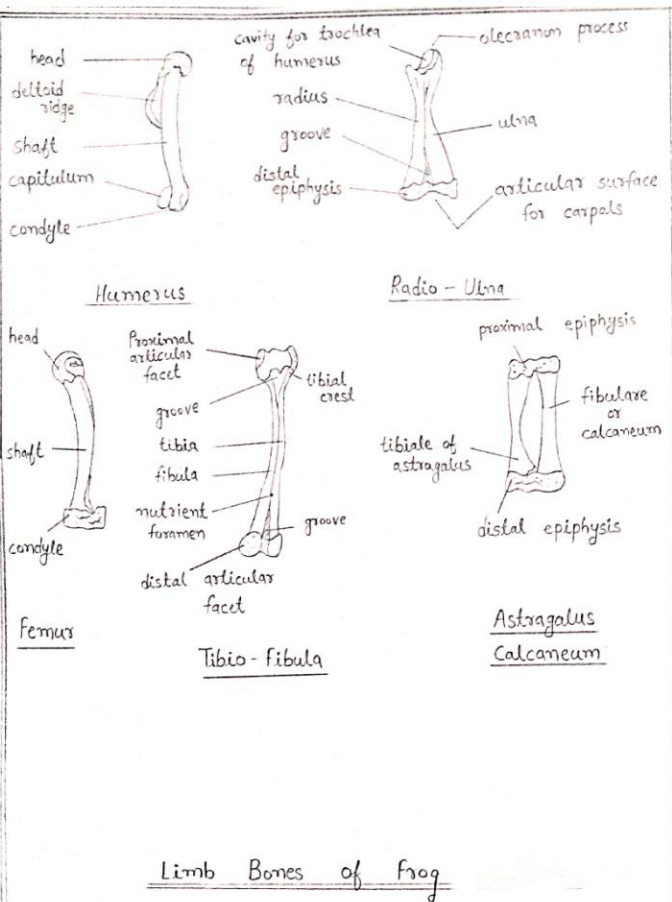 head
deltoid
ridge
shaft
capitulum
condyle
Humerus
cavity for trochlea
of humerus
olecranon process
radius
groove
ulna
distal
epiphysis
articular surface
for carpals
Radio - Ulna
head
shaft
condyle
Femur
Proximal
articular
facet
tibial
crest
groove
tibia
fibula
nutrient
foramen
groove
distal articular
facet
Tibio - Fibula
proximal epiphysis
fibulare
or
calcaneum
tibiale of
astragalus
distal epiphysis
Astragalus
Calcaneum
Limb Bones of Frog